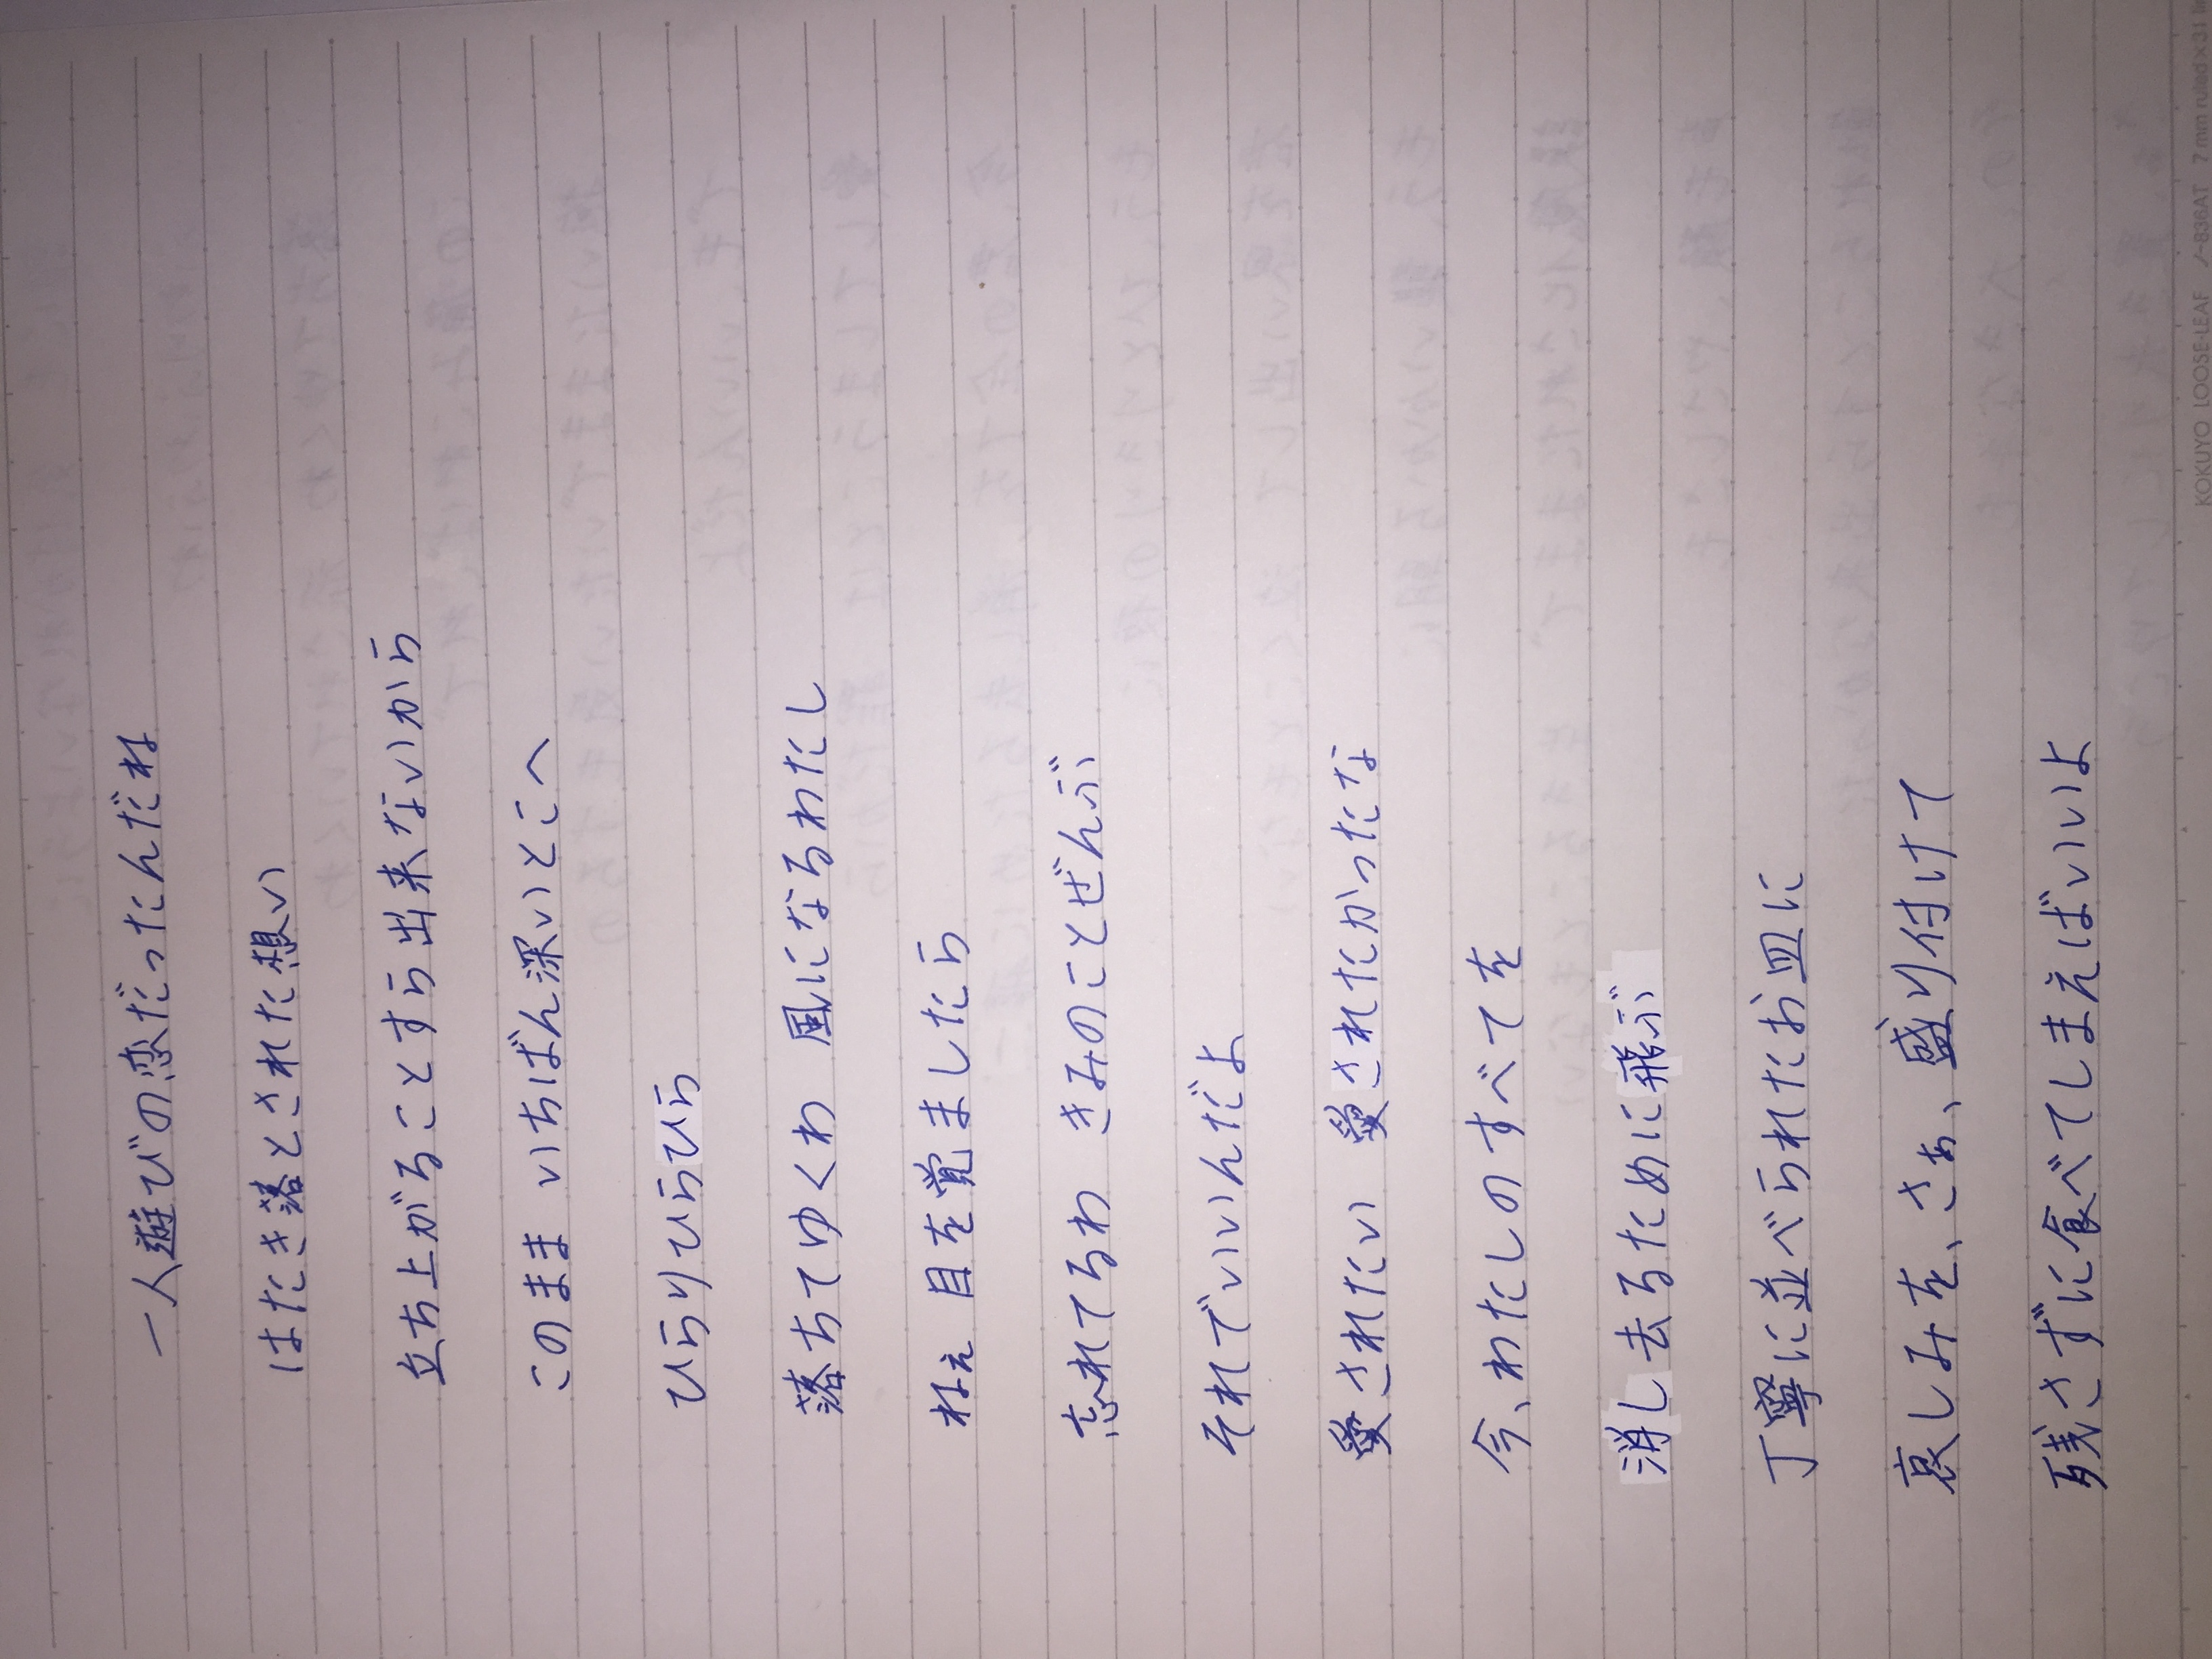 一人遊びの恋だったんだね
はたき落とされた想い
立ち上がることすら出来ないから
このまま いちばん深いとこへ
ひらりひらひら
落ちてゆくわ 風になるわたし
ねぇ 目を覚ましたら
忘れてるわ きみのことぜんぶ
それでいいんだよ
愛されたい 愛されたかったな
今、わたしのすべてを
消し去るために飛ぶ
丁寧に並べられたお皿に
哀しみを、さぁ、盛り付けて
残さずに食べてしまえばいいよ
KOKUYO LOOSE-LEAF ノ-836AT 7 mm ruled×31